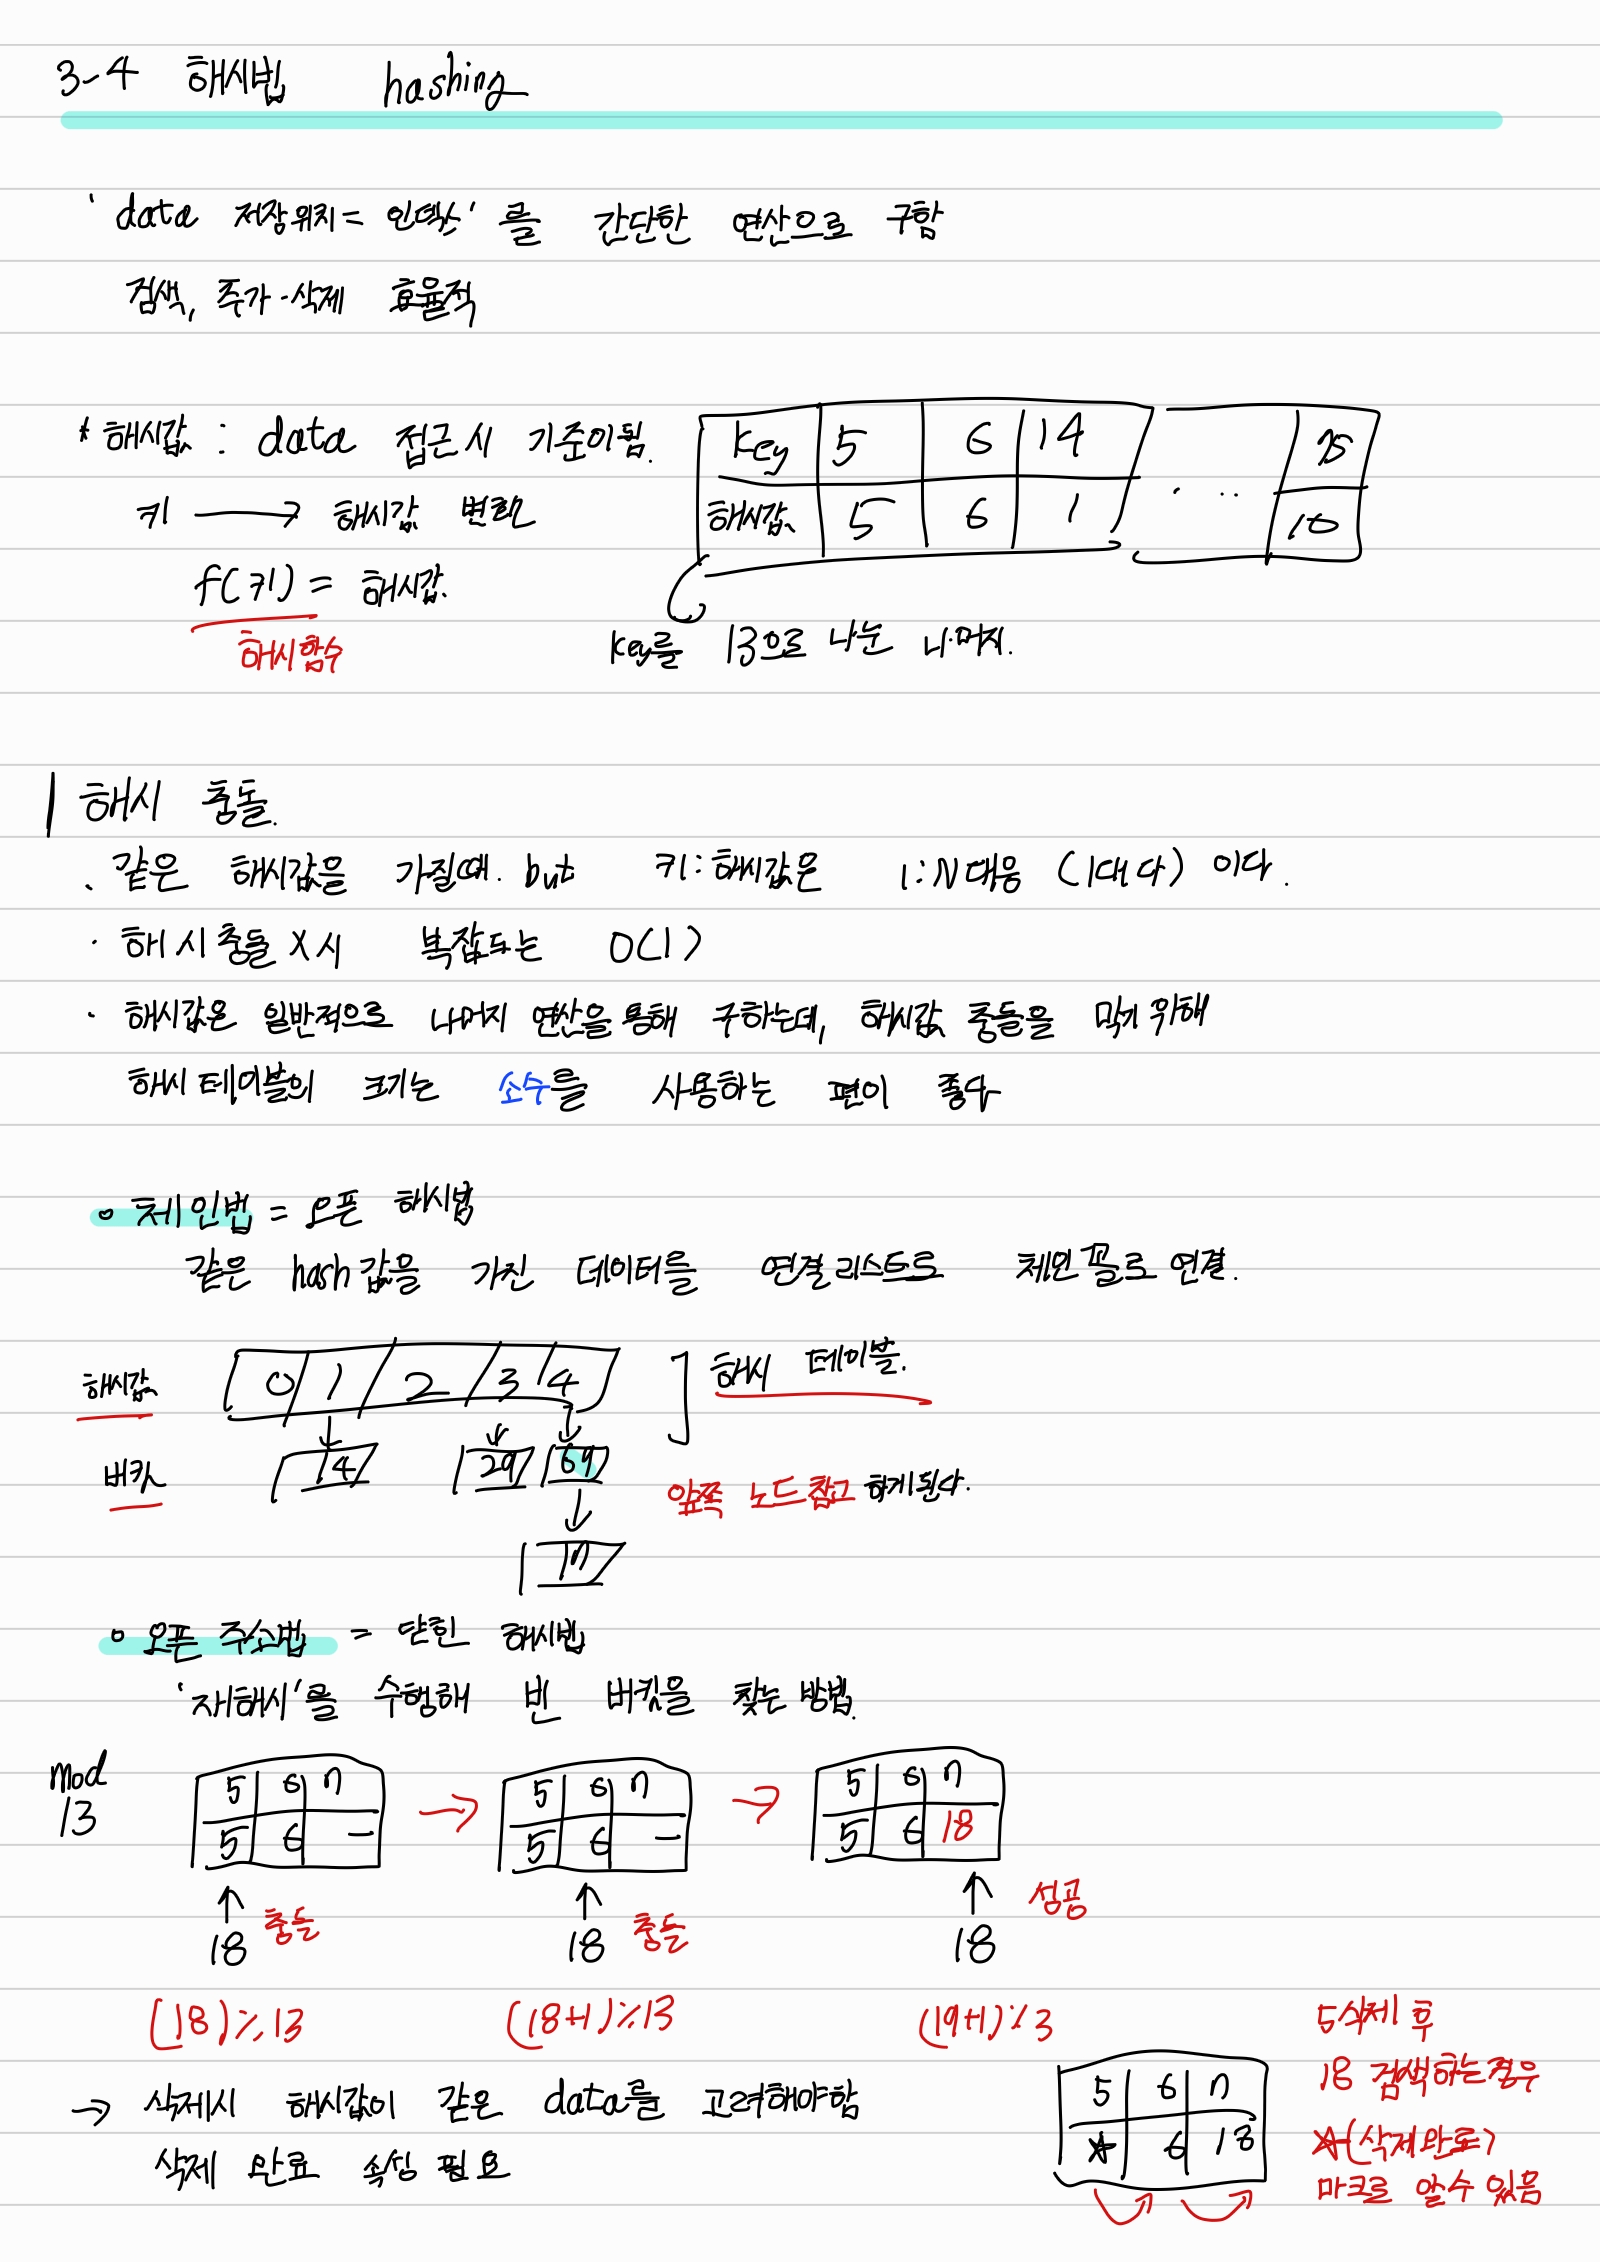 3-4 해시법 hashing
'data 저장위치 = 인덱스'를 간단한 연산으로 구함
검색, 추가·삭제 효율적
* 해시값 : data 접근시 기준이됨.
키 → 해시값 변환
f(키) = 해시값.
해시함수
key 5 6 14 ...
해시값 5 6 1 10
key를 13으로 나눈 나머지.
해시 충돌.
· 같은 해시값을 가질때. but 키:해시값은 1:N대응 (1대다) 이다.
· 해시충돌X시 복잡도는 O(1)
· 해시값은 일반적으로 나머지 연산을 통해 구하는데, 해시값 충돌을 막기 위해
해시 테이블의 크기는 소수를 사용하는 편이 좋다
○ 체인법 = 오픈 해시법
같은 hash값을 가진 데이터를 연결리스트로 체인 꼴로 연결.
해시값 0 1 2 3 4 해시 테이블.
버킷 14 29 69 앞쪽 노드참고 하게된다.
○ 오픈 주소법 = 닫힌 해시법
'재해시'를 수행해 빈 버킷을 찾는 방법.
mod
13
5 6 7 → 5 6 7 → 5 6 7
5 6 - 5 6 - 5 6 18
↑ 충돌 ↑ 충돌 ↑ 성공
18 18 18
(18)%13 (18+1)%13 (19+1)%3
→ 삭제시 해시값이 같은 data를 고려해야함
삭제 완료 속성 필요
5 6 7
☆ 6 18
5삭제 후
18 검색하는경우
☆(삭제완료)
마크로 알수 있음